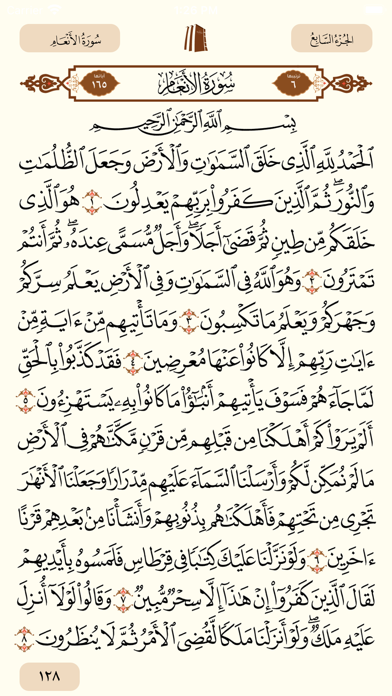 الجُزْءُ السَّابِعُ
سُورَةُ الأَنْعَامِ
ترتيبها ٦ سُورَةُ الأَنْعَامِ آياتها ١٦٥
بِسْمِ اللَّهِ الرَّحْمَٰنِ الرَّحِيمِ
ٱلْحَمْدُ لِلَّهِ ٱلَّذِى خَلَقَ ٱلسَّمَٰوَٰتِ وَٱلْأَرْضَ وَجَعَلَ ٱلظُّلُمَٰتِ
وَٱلنُّورَ ۖ ثُمَّ ٱلَّذِينَ كَفَرُوا۟ بِرَبِّهِمْ يَعْدِلُونَ ١ هُوَ ٱلَّذِى
خَلَقَكُم مِّن طِينٍ ثُمَّ قَضَىٰٓ أَجَلًا ۖ وَأَجَلٌ مُّسَمًّى عِندَهُۥ ۖ ثُمَّ أَنتُمْ
تَمْتَرُونَ ٢ وَهُوَ ٱللَّهُ فِى ٱلسَّمَٰوَٰتِ وَفِى ٱلْأَرْضِ ۖ يَعْلَمُ سِرَّكُمْ
وَجَهْرَكُمْ وَيَعْلَمُ مَا تَكْسِبُونَ ٣ وَمَا تَأْتِيهِم مِّنْ ءَايَةٍ مِّنْ
ءَايَٰتِ رَبِّهِمْ إِلَّا كَانُوا۟ عَنْهَا مُعْرِضِينَ ٤ فَقَدْ كَذَّبُوا۟ بِٱلْحَقِّ
لَمَّا جَآءَهُمْ ۖ فَسَوْفَ يَأْتِيهِمْ أَنۢبَٰٓؤُا۟ مَا كَانُوا۟ بِهِۦ يَسْتَهْزِءُونَ ٥
أَلَمْ يَرَوْا۟ كَمْ أَهْلَكْنَا مِن قَبْلِهِم مِّن قَرْنٍ مَّكَّنَّٰهُمْ فِى ٱلْأَرْضِ
مَا لَمْ نُمَكِّن لَّكُمْ وَأَرْسَلْنَا ٱلسَّمَآءَ عَلَيْهِم مِّدْرَارًا وَجَعَلْنَا ٱلْأَنْهَٰرَ
تَجْرِى مِن تَحْتِهِمْ فَأَهْلَكْنَٰهُم بِذُنُوبِهِمْ وَأَنشَأْنَا مِنۢ بَعْدِهِمْ قَرْنًا
ءَاخَرِينَ ٦ وَلَوْ نَزَّلْنَا عَلَيْكَ كِتَٰبًا فِى قِرْطَاسٍ فَلَمَسُوهُ بِأَيْدِيهِمْ
لَقَالَ ٱلَّذِينَ كَفَرُوٓا۟ إِنْ هَٰذَآ إِلَّا سِحْرٌ مُّبِينٌ ٧ وَقَالُوا۟ لَوْلَآ أُنزِلَ
عَلَيْهِ مَلَكٌ ۖ وَلَوْ أَنزَلْنَا مَلَكًا لَّقُضِىَ ٱلْأَمْرُ ثُمَّ لَا يُنظَرُونَ ٨
١٢٨